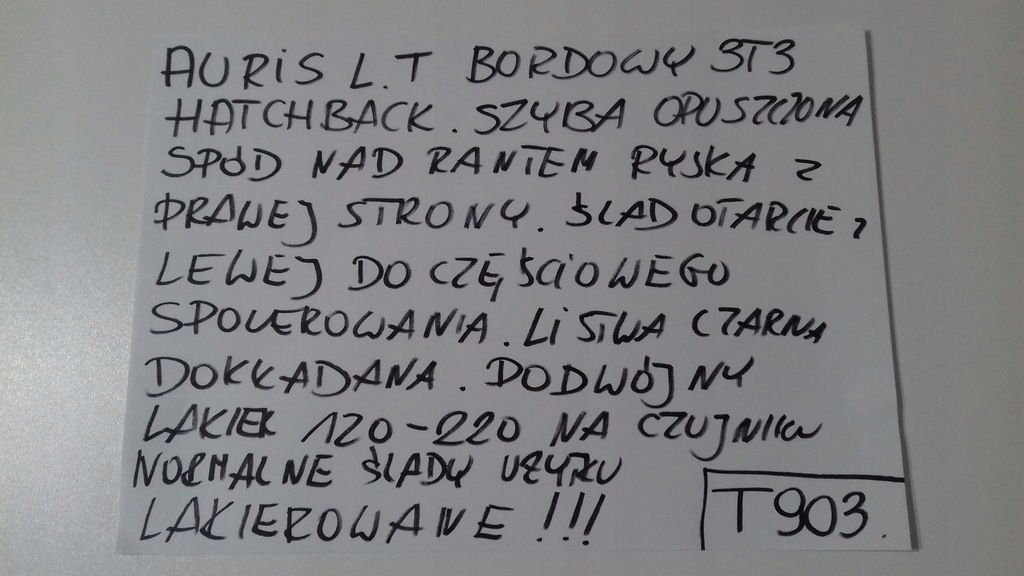 AURIS L.T BORDOWY 3T3
HATCHBACK. SZYBA OPUSZCZONA
SPÓD NAD RANTEM RYSKA Z
PRAWEJ STRONY. ŚLAD OTARCIE Z
LEWEJ DO CZĘŚCIOWEGO
SPOLEROWANIA. LISTWA CZARNA
DOKŁADANA. PODWÓJNY
LAKIER 120-220 NA CZUJNIKU
NORMALNE ŚLADY UŻYTKU
LAKIEROWANE !!!
T903.